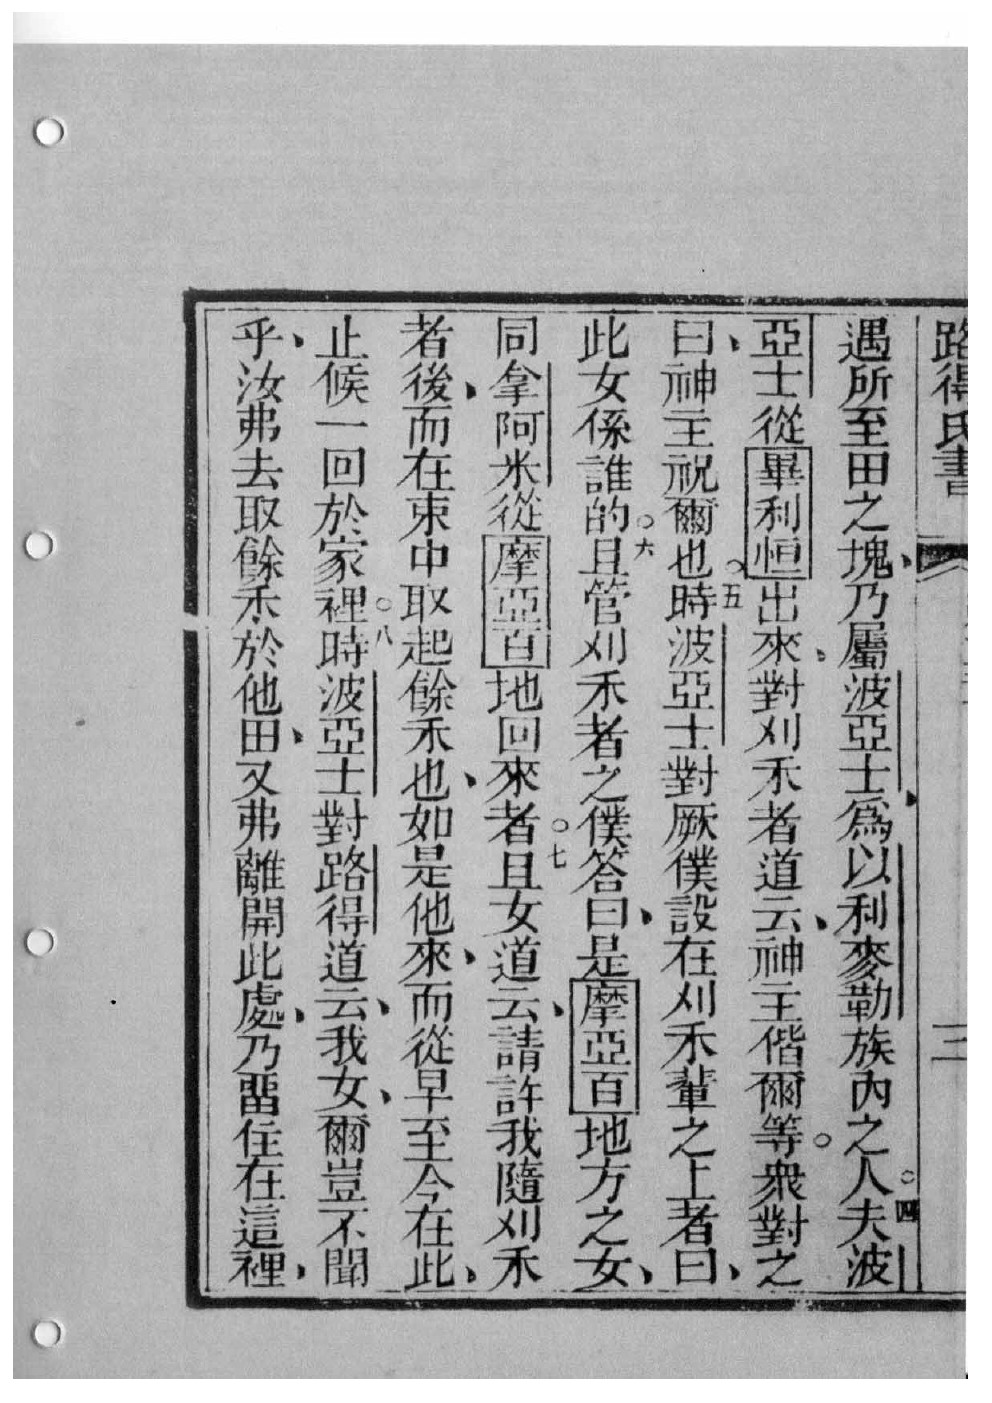 路得氏書
遇所至田之塊、乃屬波亞士、爲以利麥勒族內之人○四夫波
亞士從畢利恒出來、對刈禾者道云、神主偕爾等○衆對之
曰、神主祝爾也○五時波亞士對厥僕設在刈禾輩之上者曰、
此女係誰的○六且管刈禾者之僕答曰、是摩亞百地方之女、
同拿阿米從摩亞百地回來者○七且女道云、請許我隨刈禾
者後、而在束中取起餘禾也、如是他來、而從早至今在此、
止候一回於家裡○八時波亞士對路得道云、我女、爾豈不聞
乎、汝弗去取餘禾於他田、又弗離開此處、乃畱住在這裡、